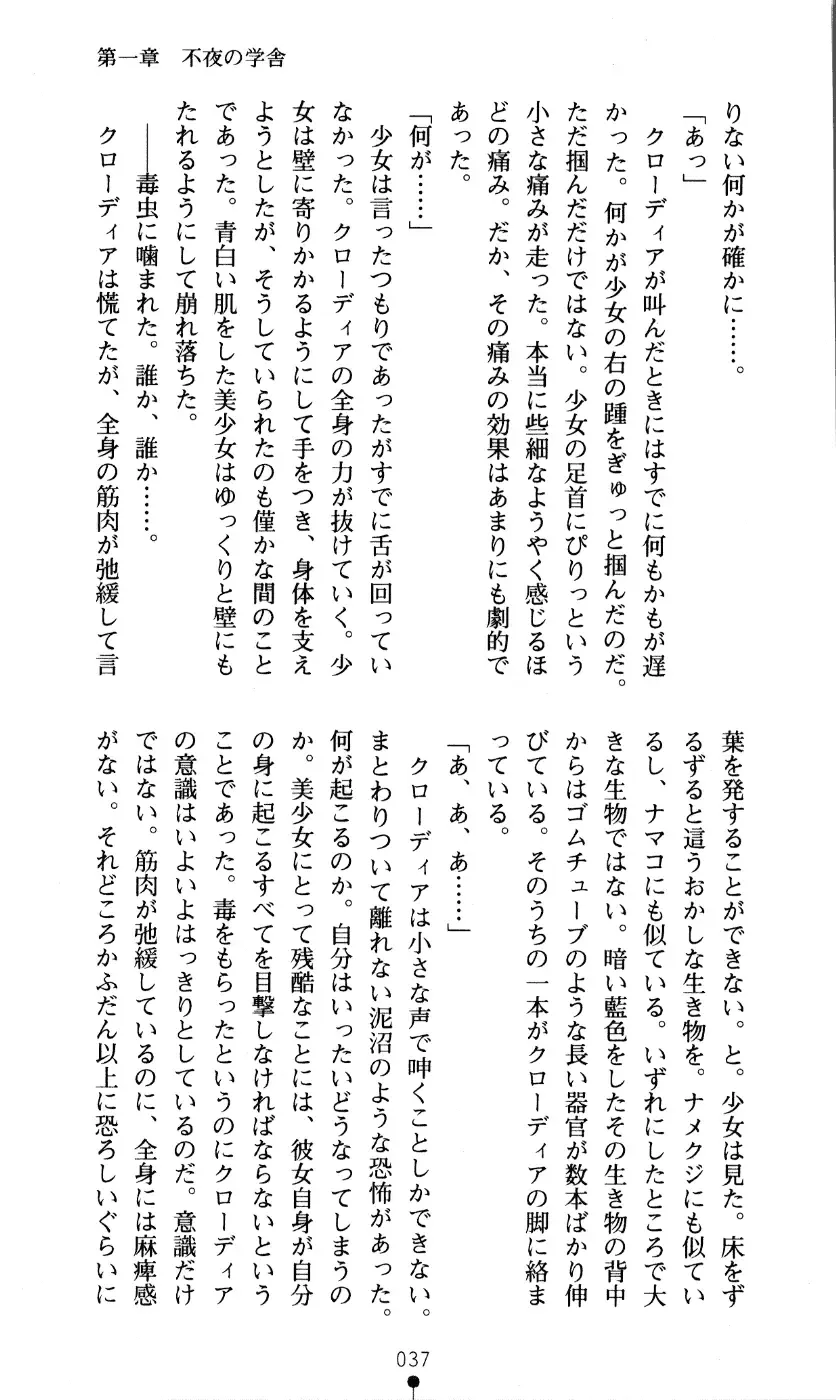 第一章　不夜の学舎
りない何かが確かに……。
「あっ」
　クローディアが叫んだときにはすでに何もかもが遅
かった。何かが少女の右の踵をぎゅっと掴んだのだ。
ただ掴んだだけではない。少女の足首にぴりっという
小さな痛みが走った。本当に些細なようやく感じるほ
どの痛み。だか、その痛みの効果はあまりにも劇的で
あった。
「何が……」
　少女は言ったつもりであったがすでに舌が回ってい
なかった。クローディアの全身の力が抜けていく。少
女は壁に寄りかかるようにして手をつき、身体を支え
ようとしたが、そうしていられたのも僅かな間のこと
であった。青白い肌をした美少女はゆっくりと壁にも
たれるようにして崩れ落ちた。
　――毒虫に噛まれた。誰か、誰か……。
　クローディアは慌てたが、全身の筋肉が弛緩して言
葉を発することができない。と。少女は見た。床をず
るずると這うおかしな生き物を。ナメクジにも似てい
るし、ナマコにも似ている。いずれにしたところで大
きな生物ではない。暗い藍色をしたその生き物の背中
からはゴムチューブのような長い器官が数本ばかり伸
びている。そのうちの一本がクローディアの脚に絡ま
っている。
「あ、あ、あ……」
　クローディアは小さな声で呻くことしかできない。
まとわりついて離れない泥沼のような恐怖があった。
何が起こるのか。自分はいったいどうなってしまうの
か。美少女にとって残酷なことには、彼女自身が自分
の身に起こるすべてを目撃しなければならないという
ことであった。毒をもらったというのにクローディア
の意識はいよいよはっきりとしているのだ。意識だけ
ではない。筋肉が弛緩しているのに、全身には麻痺感
がない。それどころかふだん以上に恐ろしいぐらいに
037